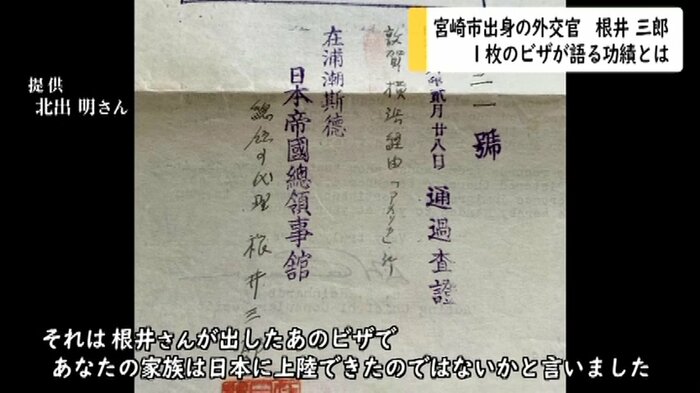 宮崎市出身の外交官 根井 三郎
1枚のビザが語る功績とは
提供
北出 明さん
二一號
貳月廿八日 通過査證
敦賀横浜経由「アメリカ」行
在浦潮斯德
日本帝國總領事館
總領事代理 根井三郎
それは 根井さんが出したあのビザで
あなたの家族は日本に上陸できたのではないかと言いました